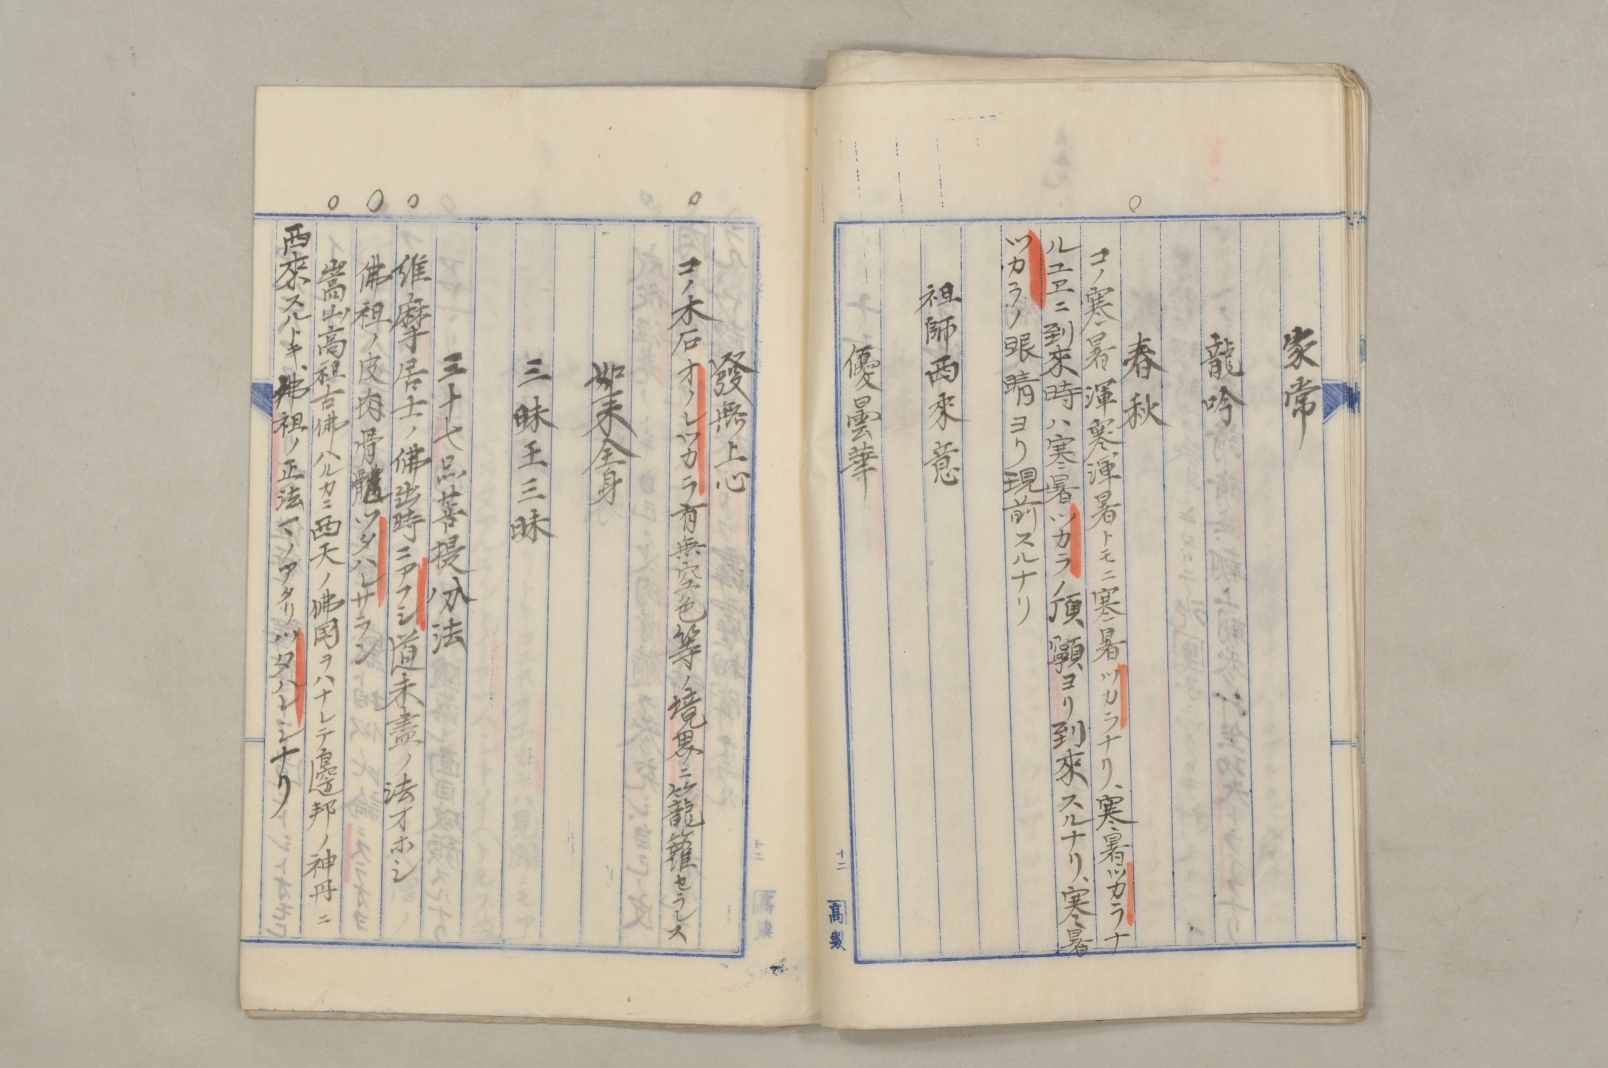 家常
龍吟
春秋
コノ寒暑渾寒渾暑トモニ寒暑ツカラナリ、寒暑ツカラナ
ルユヱニ到來時ハ寒暑ツカラノ頂𩕳ヨリ到來スルナリ、寒暑
ツカラノ眼睛ヨリ現前スルナリ
祖師西來意
優曇華
十二
高製
發無上心
コノ木石オノレツカラ有無空色等ノ境界ニ籠籮セラレス
如来全身
三昧王三昧
三十七品菩提分法
維摩居士ノ佛出時ニアフシ道未盡ノ法オホシ
佛祖ノ皮肉骨髓ツタハレサラン
嵩山高祖古佛ハルカニ西天ノ佛国ヲハナレテ邊邦ノ神丹ニ
西來スルトキ、佛祖ノ正法マノアタリツタハレシナリ